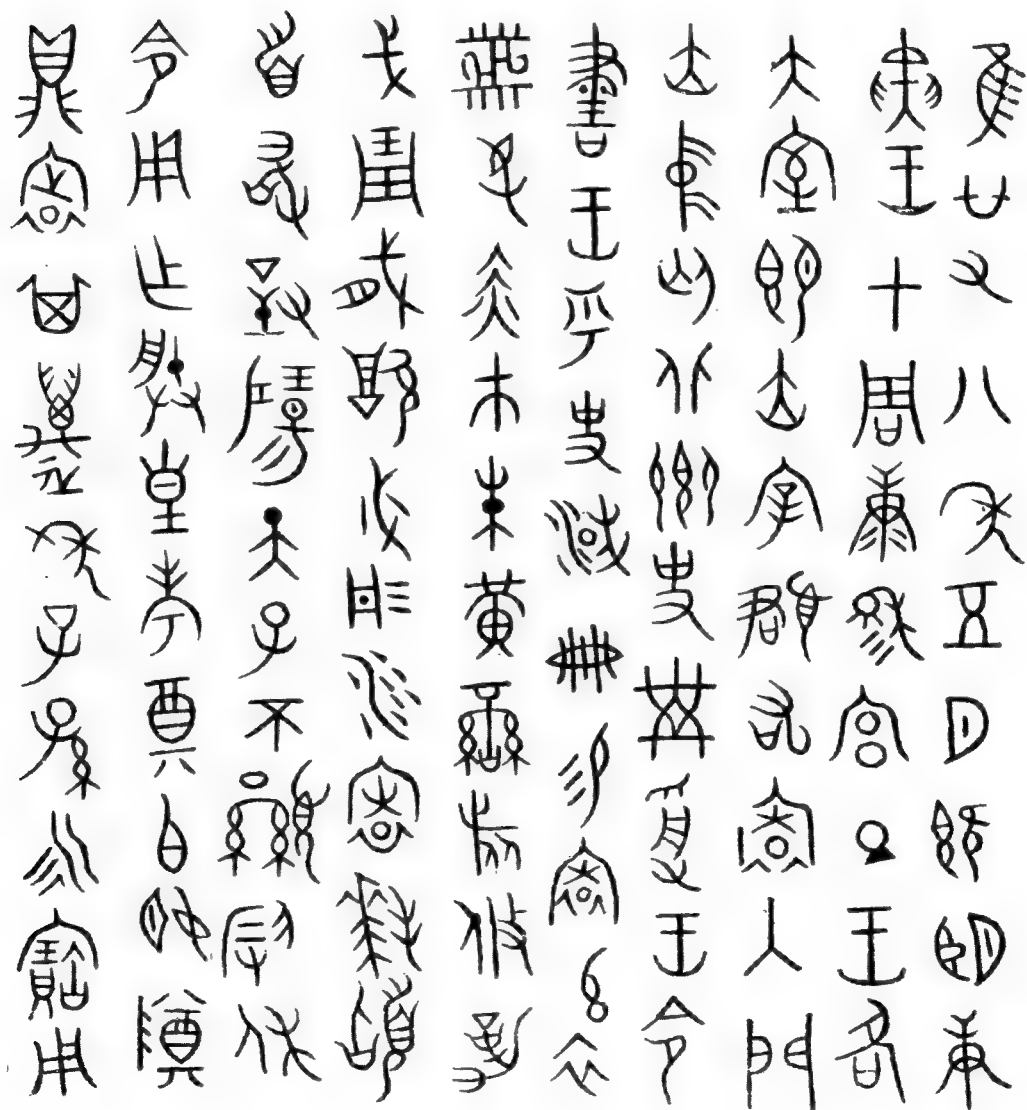 隹廿又八年五月既望庚
寅王才周康穆宮旦王各
大室即立宰頵右寰入門
立中廷北鄉史黹受王令
書王乎史淢冊易寰玄衣
黹屯赤市朱黃䜌旂攸勒
戈琱戟厚必彤沙寰拜稽
首敢對揚天子不顯叚休
令用乍朕皇考奠白姬尊
鼎寰其萬年子孫永寶用